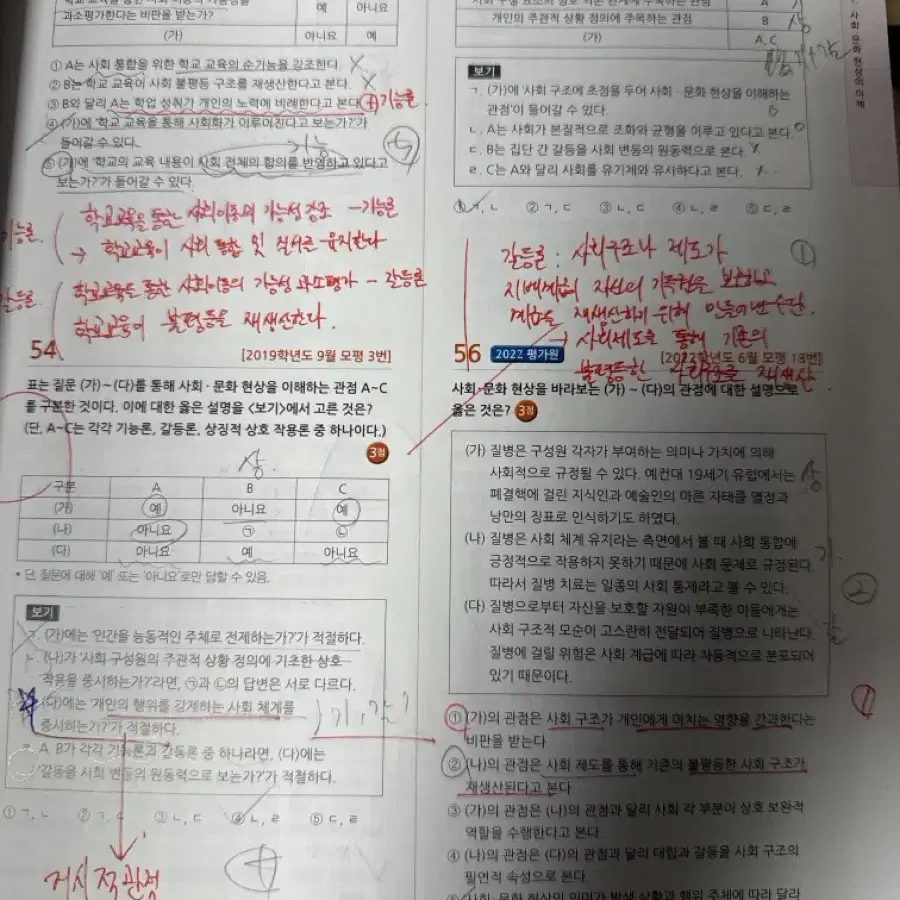 과소평가한다는 비판을 받는가?
예 아니요
(가) 아니요 예
① A는 사회 통합을 위한 학교 교육의 순기능을 강조한다.
② B는 학교 교육이 사회 불평등 구조를 재생산한다고 본다.
③ B와 달리 A는 학업 성취가 개인의 노력에 비례한다고 본다. 기능론.
④ (가)에 '학교 교육을 통해 사회화가 이루어진다고 보는가?'가
들어갈 수 있다. 기능
⑤ (가)에 '학교의 교육 내용이 사회 전체의 합의를 반영하고 있다고
보는가?'가 들어갈 수 있다.
기능론. 학교교육을 통한 사회이동의 가능성 강조 - 기능론
→ 학교교육이 사회 통합 및 질서를 유지한다
갈등론. 학교교육을 통한 사회이동의 가능성 과소평가 - 갈등론
학교교육이 불평등을 재생산한다.
54
[2019학년도 9월 모평 3번]
표는 질문 (가)~(다)를 통해 사회·문화 현상을 이해하는 관점 A~C
를 구분한 것이다. 이에 대한 옳은 설명을 <보기>에서 고른 것은?
(단, A~C는 각각 기능론, 갈등론, 상징적 상호 작용론 중 하나이다.)
3점
상
구분 A B C
(가) 예 아니요 예
(나) 아니요 ㉠ ㉡
(다) 아니요 예 아니요
* 단, 질문에 대해 '예' 또는 '아니요'로만 답할 수 있음.
보기
ㄱ. (가)에는 '인간을 능동적인 주체로 전제하는가?'가 적절하다.
ㄴ. (나)가 '사회 구성원의 주관적 상황 정의에 기초한 상호
작용을 중시하는가?'라면, ㉠과 ㉡의 답변은 서로 다르다.
ㄷ. (다)에는 '개인의 행위를 강제하는 사회 체계를
중시하는가?'가 적절하다.
기, 갈?
ㄹ. A, B가 각각 기능론과 갈등론 중 하나라면, (다)에는
'갈등을 사회 변동의 원동력으로 보는가?'가 적절하다.
① ㄱ, ㄴ ② ㄱ, ㄷ ③ ㄴ, ㄷ ④ ㄴ, ㄹ ⑤ ㄷ, ㄹ
거시적관점
④
A
개인의 주관적 상황 정의에 주목하는 관점 B 상
(가) A, C
보기
ㄱ. (가)에 '사회 구조에 초점을 두어 사회·문화 현상을 이해하는
관점'이 들어갈 수 있다.
ㄴ. A는 사회가 본질적으로 조화와 균형을 이루고 있다고 본다.
ㄷ. B는 집단 간 갈등을 사회 변동의 원동력으로 본다.
ㄹ. C는 A와 달리 사회를 유기체와 유사하다고 본다.
① ㄱ, ㄴ ② ㄱ, ㄷ ③ ㄴ, ㄷ ④ ㄴ, ㄹ ⑤ ㄷ, ㄹ
갈등론 : 사회구조나 제도가 ①
지배계급이 자신의 기득권을 보호하고
계급을 재생산하기 위해 만들어낸 수단.
→ 사회제도를 통해 기존의
불평등한 사회구조를 재생산
56
2022 평가원
[2022학년도 6월 모평 18번]
사회·문화 현상을 바라보는 (가)~(다)의 관점에 대한 설명으로
옳은 것은? 3점
(가) 질병은 구성원 각자가 부여하는 의미나 가치에 의해
사회적으로 규정될 수 있다. 예컨대 19세기 유럽에서는 상
폐결핵에 걸린 지식인과 예술인의 마른 자태를 열정과
낭만의 징표로 인식하기도 하였다.
(나) 질병은 사회 체계 유지라는 측면에서 볼 때 사회 통합에
긍정적으로 작용하지 못하기 때문에 사회 문제로 규정된다. 기.
따라서 질병 치료는 일종의 사회 통제라고 볼 수 있다. ②
(다) 질병으로부터 자신을 보호할 자원이 부족한 이들에게는
사회 구조적 모순이 고스란히 전달되어 질병으로 나타난다. 갈
질병에 걸릴 위험은 사회 계급에 따라 차등적으로 분포되어
있기 때문이다.
① (가)의 관점은 사회 구조가 개인에게 미치는 영향을 간과한다는
비판을 받는다.
② (나)의 관점은 사회 제도를 통해 기존의 불평등한 사회 구조가
재생산된다고 본다.
③ (가)의 관점은 (나)의 관점과 달리 사회 각 부분이 상호 보완적
역할을 수행한다고 본다.
④ (나)의 관점은 (다)의 관점과 달리 대립과 갈등을 사회 구조의
필연적 속성으로 본다.
사회 문화 현상의 이해